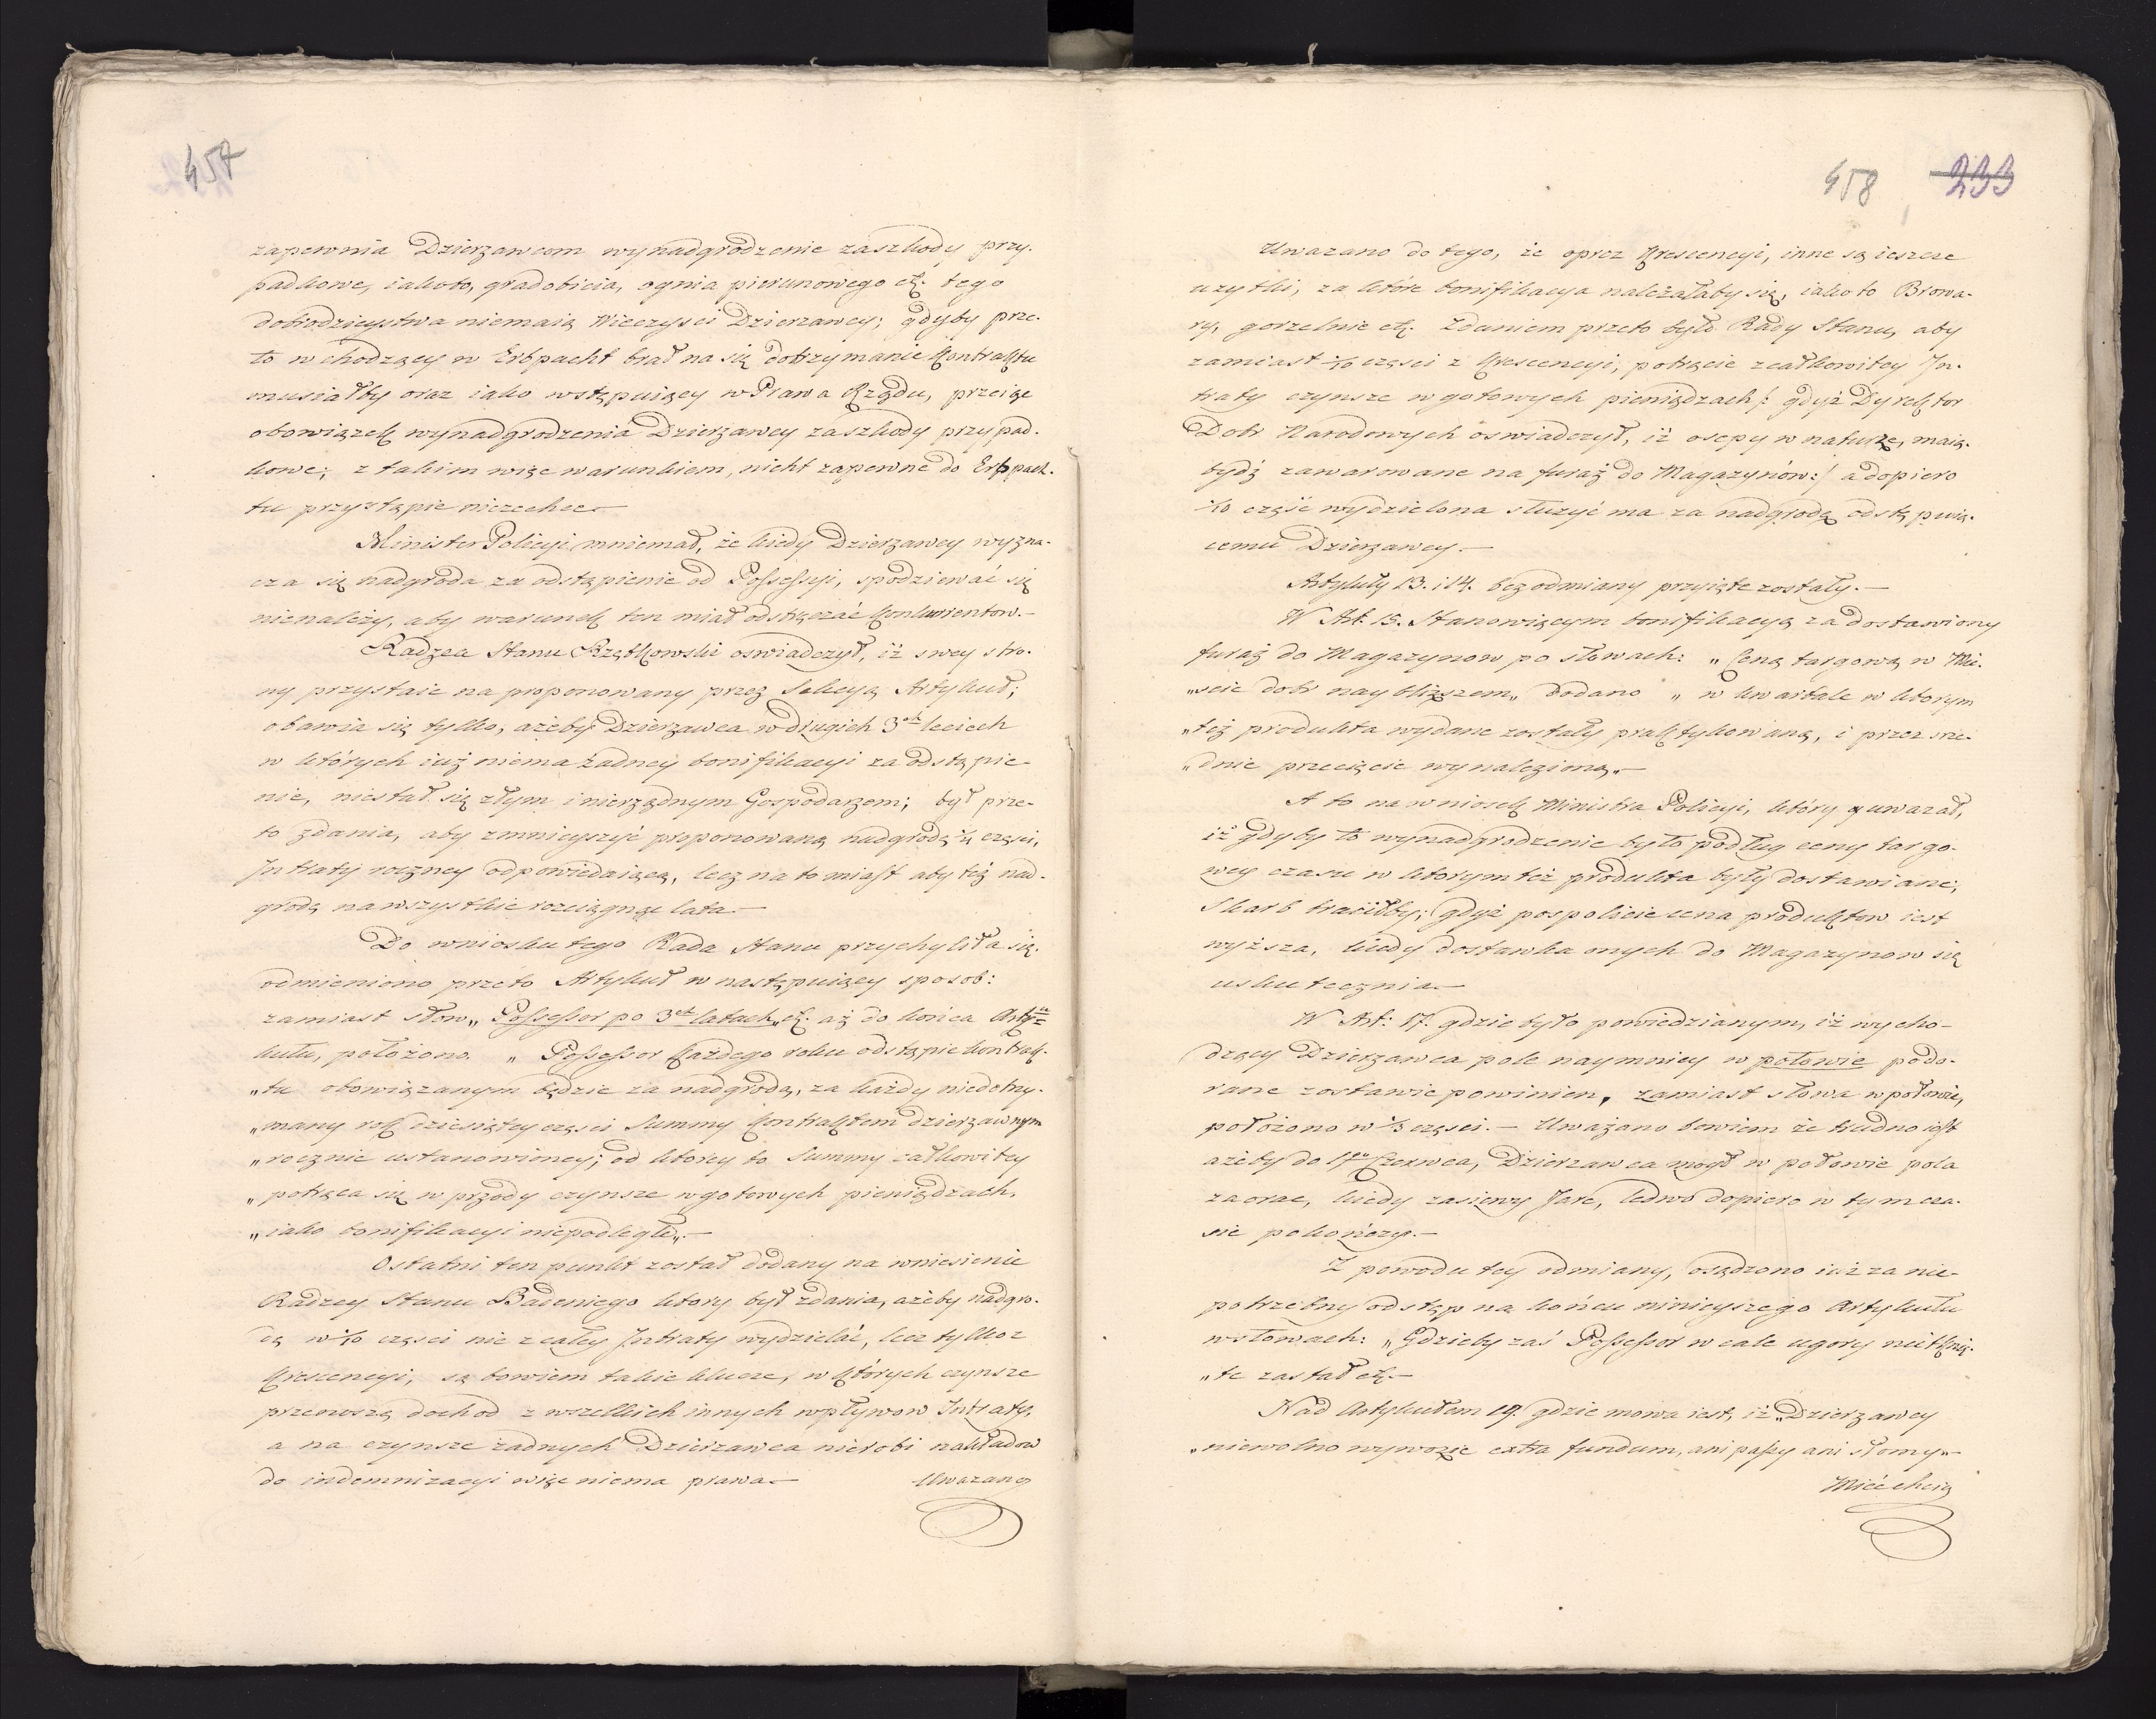 457
zapewnia Dzierzawcom wynadgrodzenie zaszkody przy-
padkowe, iakoto, gradobicia, ognia piorunowego etc. tego
dobrodzieystwa niemaią Wieczysci Dzierzawcy; gdyby prze-
to wchodzący w Erbpacht brał na się dotrzymanie Kontraktu
musiałby oraz iako wstępuiący w Prawa Rządu, przeiąć
obowiązek wynadgrodzenia Dzierzawcy zaszkody przypad-
kowe; z takim więc warunkiem, nicht zapewne do Erbpach-
tu przystąpic niezechce.—
Minister Policyi mniemał, że kiedy Dzierzawcy wyzna-
cza się nadgroda za odstąpienie od Possessyi, spodziewać się
nienależy, aby warunek ten miał odstręczać Konkurientow.—
Radzca Stanu Rzątkowski oswiadczył, iż swey stro-
ny przystaie na proponowany przez Sekcyą Artykuł;
obawia się tylko, ażeby Dzierzawca w drugich 3ch leciech
w których iuż niema żadney bonifikacyi za odstąpie-
nie, niestał się złym i nierządnym Gospodarzem; był prze-
to zdania, aby zmnieyszyć proponowaną nadgrodę ¼ części,
Intraty roczney odpowiedaiącą, lecz na to miast aby też nad-
grodę na wszystkie rozciągnąć lata.—
Do wniosku tego Rada Stanu przychyliła się.
odmieniono przeto Artykuł w nastepuiący sposob:
zamiast słow „Possessor po 3ch latach„ etc. aż do końca Arty-
kułu, położono. „Possessor Każdego roku odstąpic kontrak-
„tu obowiązanym będzie za nadgrodą, za każdy niedotrzy-
„many rok dziesiątey części Summy Kontraktem dzierzawnym
„rocznie ustanowioney; od ktorey to Summy całkowitey
„potrąca się w przody czynsze w gotowych pieniądzach,
„iako bonifikacyi niepodległe„.—
Ostatni ten punkt został dodany na wniesienie
Radzcy Stanu Badeniego ktory był zdania, ażeby nadgro-
dę w 1/10 części nie z całey Intraty wydzielać, lecz tylko z
Krescencyi, są bowiem takie klucze, w których czynsze
przenoszą dochod z wszelkich innych wpływow Intraty,
a na czynsze żadnych Dzierzawca nierobi nakładow
do indemnizacyi więc niema prawa.—
Uwazano
458 233
Uwazano do tego, że oprcz Krescencyi, inne są ieszcze
uzytki, za które bonifikacya należałaby się, iako to Browa-
ry, gorzelnie etc. Zdaniem przeto było Rady Stanu, aby
zamiast 1/10 części z Krescencyi, potrącic z całkowitey In-
traty czynsze w gotowych pieniądzach /: gdyż Dyrektor
Dobr Narodowych oswiadczył, iż osepy w naturze, maią
bydź zawarowane na furaż do Magazynów :/ a dopiero
1/10 część wydzielona służyć ma za nadgrodę odstępuią-
cemu Dzierzawcy.—
Artykuły 13. i 14. bez odmiany przyięte zostały.—
W Art. 15. Stanowiącym bonifikacyą za dostawiony
furaż do Magazynow po słowach: „Ceną targową w Mie-
„scie dobr naybliższem„ dodano „w kwartale w ktorym
„też produkta wydane zostały praktykowaną, i przez sre-
„dnie przecięcie wynalezioną„.—
A to na wniosek Ministra Policyi, ktory uwazał,
iż gdyby to wynadgrodzenie było podług ceny targo-
wey czasu w ktorym też produkta były dostawiane,
Skarb traciłby; gdyż pospolicie cena produktow iest
wyższa, kiedy dostawka onych do Magazynow się
uskutecznia.—
W Art: 17. gdzie było powiedzianym, iż wycho-
dzący Dzierzawca pole naymniey w połowie podo-
rane zostawić powinien, zamiast słowa w połowie,
położono w 1/3 części.— Uważano bowiem że trudno iest
ażeby do 1go Czerwca, Dzierzawca mogł w połowie pola
zaorac, kiedy zasiewy Jare, ledwo dopiero w tym cza-
sie pokończy.—
Z powodu tey odmiany, osądzono iuż za nie-
potrzebny odstęp na końcu ninieyszego Artykułu
w słowach: „Gdzieby zaś Possessor w cale ugory nietknię-
„te zastał etc.—
Nad Artykułem 19. gdzie mowa iest, iż „Dzierzawcy
„niewolno wywozic extra fundum, ani paszy ani słomy„—
Mieć chcią